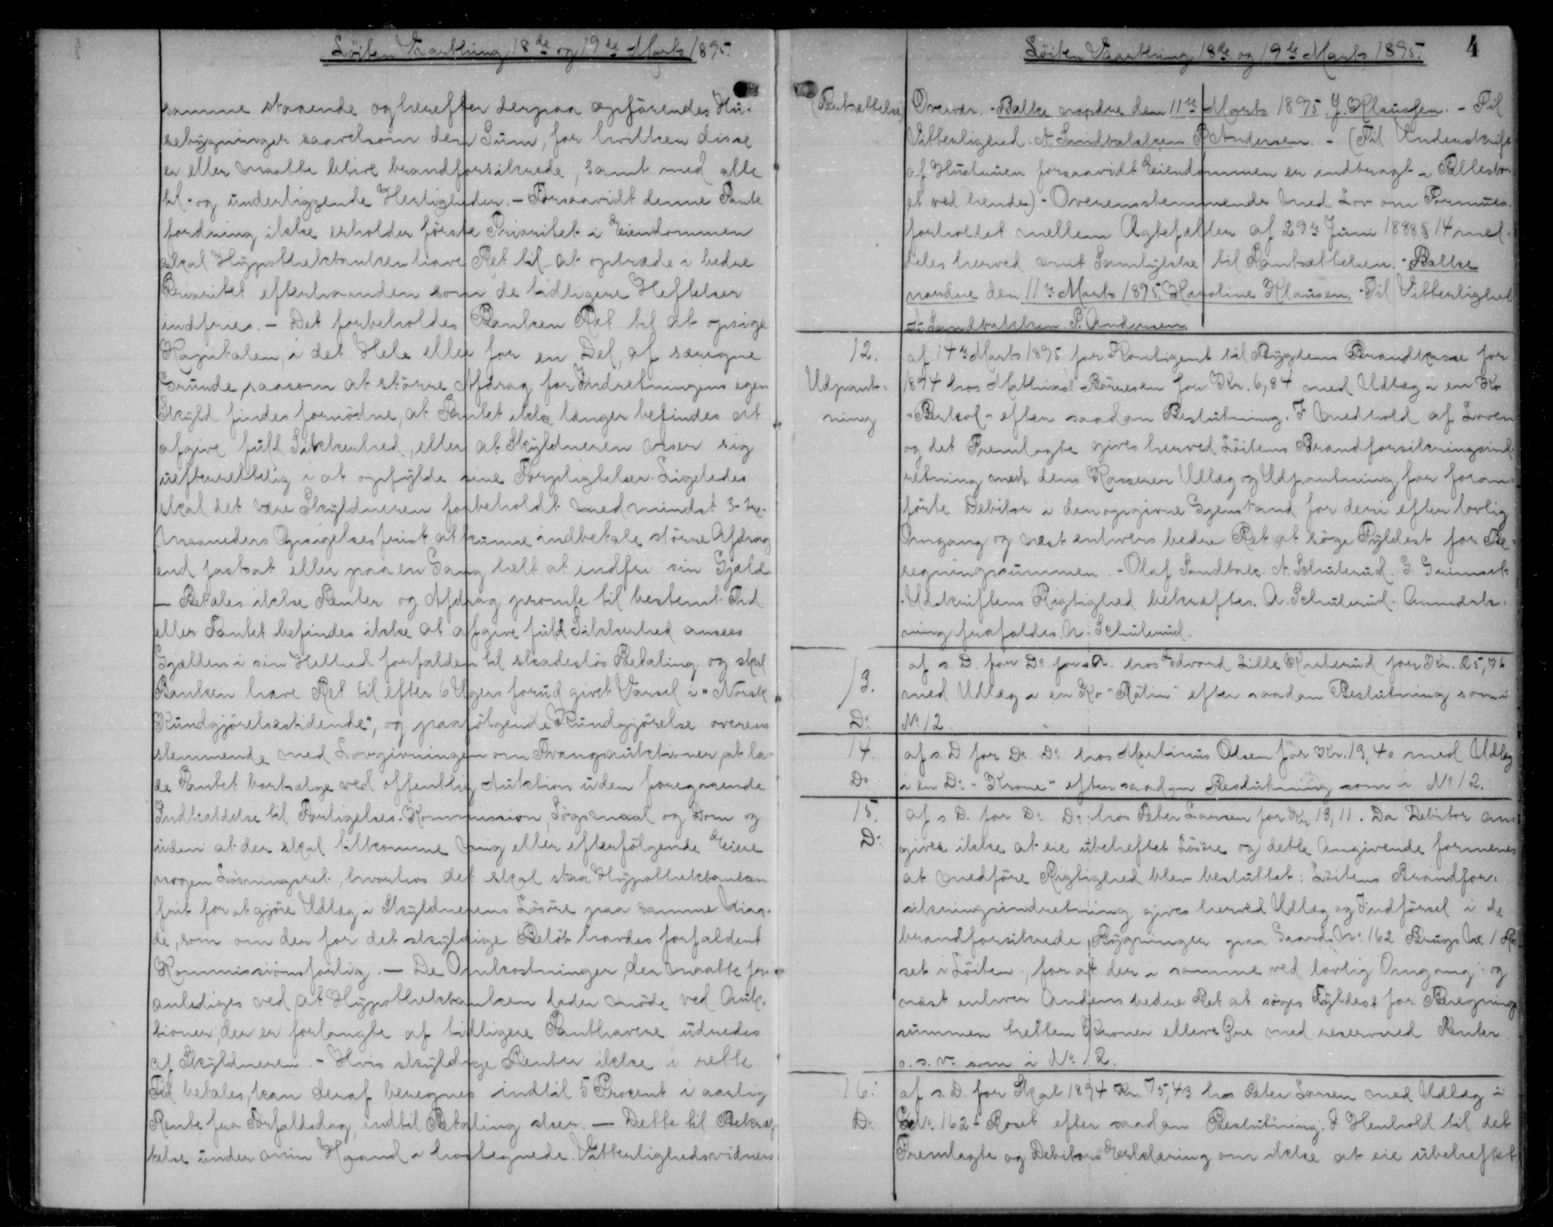 Löiten Vaarthing 18de og 19de Marts 1895.
samme staaende og herefter derpaa opförendes Hu-
sebygninger saavelsom den Sum, for hvilken disse
er eller maatte blive brandforsikrede, samt med alle
til- og underliggende Herligheder. - Forsaavidt denne Pante
fordring ikke erholder förste Prioritet i Eiendommen
skal Hypothekbanken have Ret til at optræde i bedre
Prioritet efterhaanden som de tidligere Heftelser
indfries. - Det forbeholdes Banken Ret til at opsige
Kapitalen i det Hele eller for en Del, af særegne
Grunde, saasom at större Afdrag for Indretningens egen
Skyld findes fornödne, at Pantet ikke længer befindes at
afgive fuld Sikkerhed, eller at Skyldneren viser sig
uefterrettelig i at opfylde sine Forpligtelser. Ligeledes
skal det være Skyldneren forbeholdt med mindst 3- tre-
Maaneders Opsigelsesfrist at kunne indbetale större Afdrag
end fastsat eller paa en Gang helt at indfri sin Gjæld
- Betales ikke Renter og Afdrag promte til bestemt Tid
eller Pantet befindes ikke at afgive fuld Sikkerhed ansees
Gjælden i sin Helhed forfalden til skadeslös Betaling og skal
Banken have Ret til efter 6 Ugers forud givet Varsel i "Norsk
Kundgjörelsestidende", og paafölgende Kundgjörelse overens
stemmende med Lovgivningen om Tvangsauktioner at la-
de Pantet bortsælge ved offentlig Auktion uden foregaaende
Indkaldelse til Forligelses-Kommission, Sögsmaal og Dom og
uden at der skal tilkomme mig eller efterfölgende Eiere
nogen Lösningsret, hvorhos det skal staa Hypothekbanken
frit for at gjöre Udlæg i Skyldnerens Lösöre paa samme Maa-
de, som om der for det skyldige Belöb havdes forfaldent
Kommissionsforlig. - De Omkostninger, der maatte for-
anlediges ved at Hypothekbanken lader möde ved Auk-
tioner, der er forlangte af tidligere Panthavere udredes
af Skyldneren. - Hvis skyldige Renter ikke i rette
Tid betales, kan deraf beregnes indtil 5 Procent i aarlig
Rente fra Forfaldsdag indtil Betaling sker. - Dette til Bekræf-
telse under min Haand i hostegnede Vitterlighedsvidners
Löiten Vaarthing 18de og 19de Marts 1895.
4
(Pantsættelse)
Overvær. - Balke nordre den 11te Marts 1895. J. Klausen. - Til
Vitterlighed. A. Sandbakken P. Andersen. - (Til Underskrift
af Hustruen forsaavidt Eiendommen er indbragt i Fællesbo-
et ved hende) - Overensstemmende med Lov om Formues-
forholdet mellem Ægtefæller af 29de Juni 1888 § 14 med-
deles herved mit Samtykke til Pantsættelsen. - Balke
nordre den 11te Marts 1895. Karoline Klausen. Til Vitterlighed.
A. Sandbakken P. Andersen
12.
Udpant-
ning
af 14de Marts 1895 for Kontigent til Bygdens Brandkasse for
1894 hos Mathias Börresen for Kr. 6,84 med Udlæg i en Ko
efter saadan Beslutning. I Medhold af Loven
og det Fremlagte gives herved Löitens Brandforsikringsind-
retning ved dens Kasserer Udlæg og Udpantning for foran-
förte Debitor i den opgivne Gjenstand for deri efter lovlig
Omgang og næst enhvers bedre Ret at söge Fyldest for Be-
regningssummen. - Olaf Sandbæk. A. Schulerud. G. Grimset.
Udskriftens Rigtighed bekræftes. A. Schulerud. Anmærk-
ning frafaldes. A. Schulerud.
13.
Do
af s. D. for Do for s. A. hos Edvard Lille Karterud for Kr. 25,76
med Udlæg i en Ko "Rölin" efter saadan Beslutning som i
No 12
14.
Do
af s. D for Do Do hos Martinus Olsen for Kr. 13,40 med Udlæg
i en Do "Krone" efter saadan Beslutning som i No 12.
15.
Do
af s D. for Do Do hos Peter Larsen for Kr 13,11. Da Debitor an-
gives ikke at eie ubeheftet Lösöre og dette Angivende formenes
at medföre Rigtighed blev besluttet: Löitens Brandfor-
sikringsindretning gives herved Udlæg og Indförsel i de
brandforsikrede Bygninger paa Gaards No 162 Brugs No 1 Ro-
set i Löiten, for at der i samme ved lovlig Omgang og
næst enhver Andens bedre Ret at söges Fyldest for Beregnings-
summen tretten Kroner elleve Öre med reserverede Renter
o. s. v. som i No 12.
16.
Do
af s. D. for Skat 1894 Kr. 75,43 hos Peter Larsen med Udlæg i
G.No. 162 - Roset efter saadan Beslutning. I Henhold til det
Fremlagte og Debitors Erklæring om ikke at eie ubeheftet